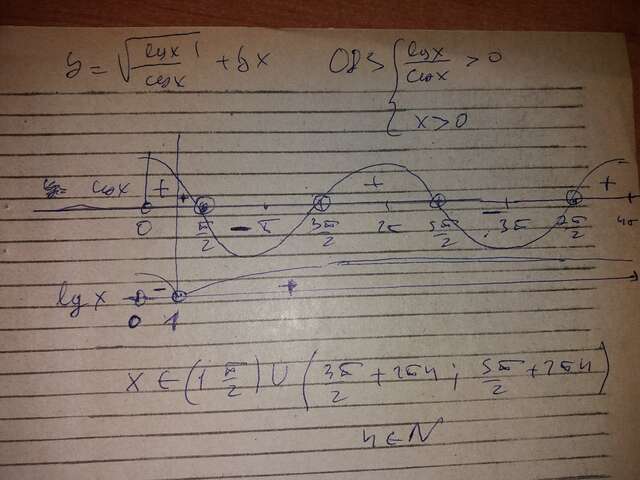 y = √(lgx / cosx) + tgx   ОДЗ { lgx / cosx > 0
x > 0
y = cosx + + - + - +
0 π/2 π 3π/2 2π 5π/2 3π 7π/2 4π
lg x - +
0 1
x ∈ (1 π/2) ∪ (3π/2 + 2πn ; 5π/2 + 2πn)
n ∈ N